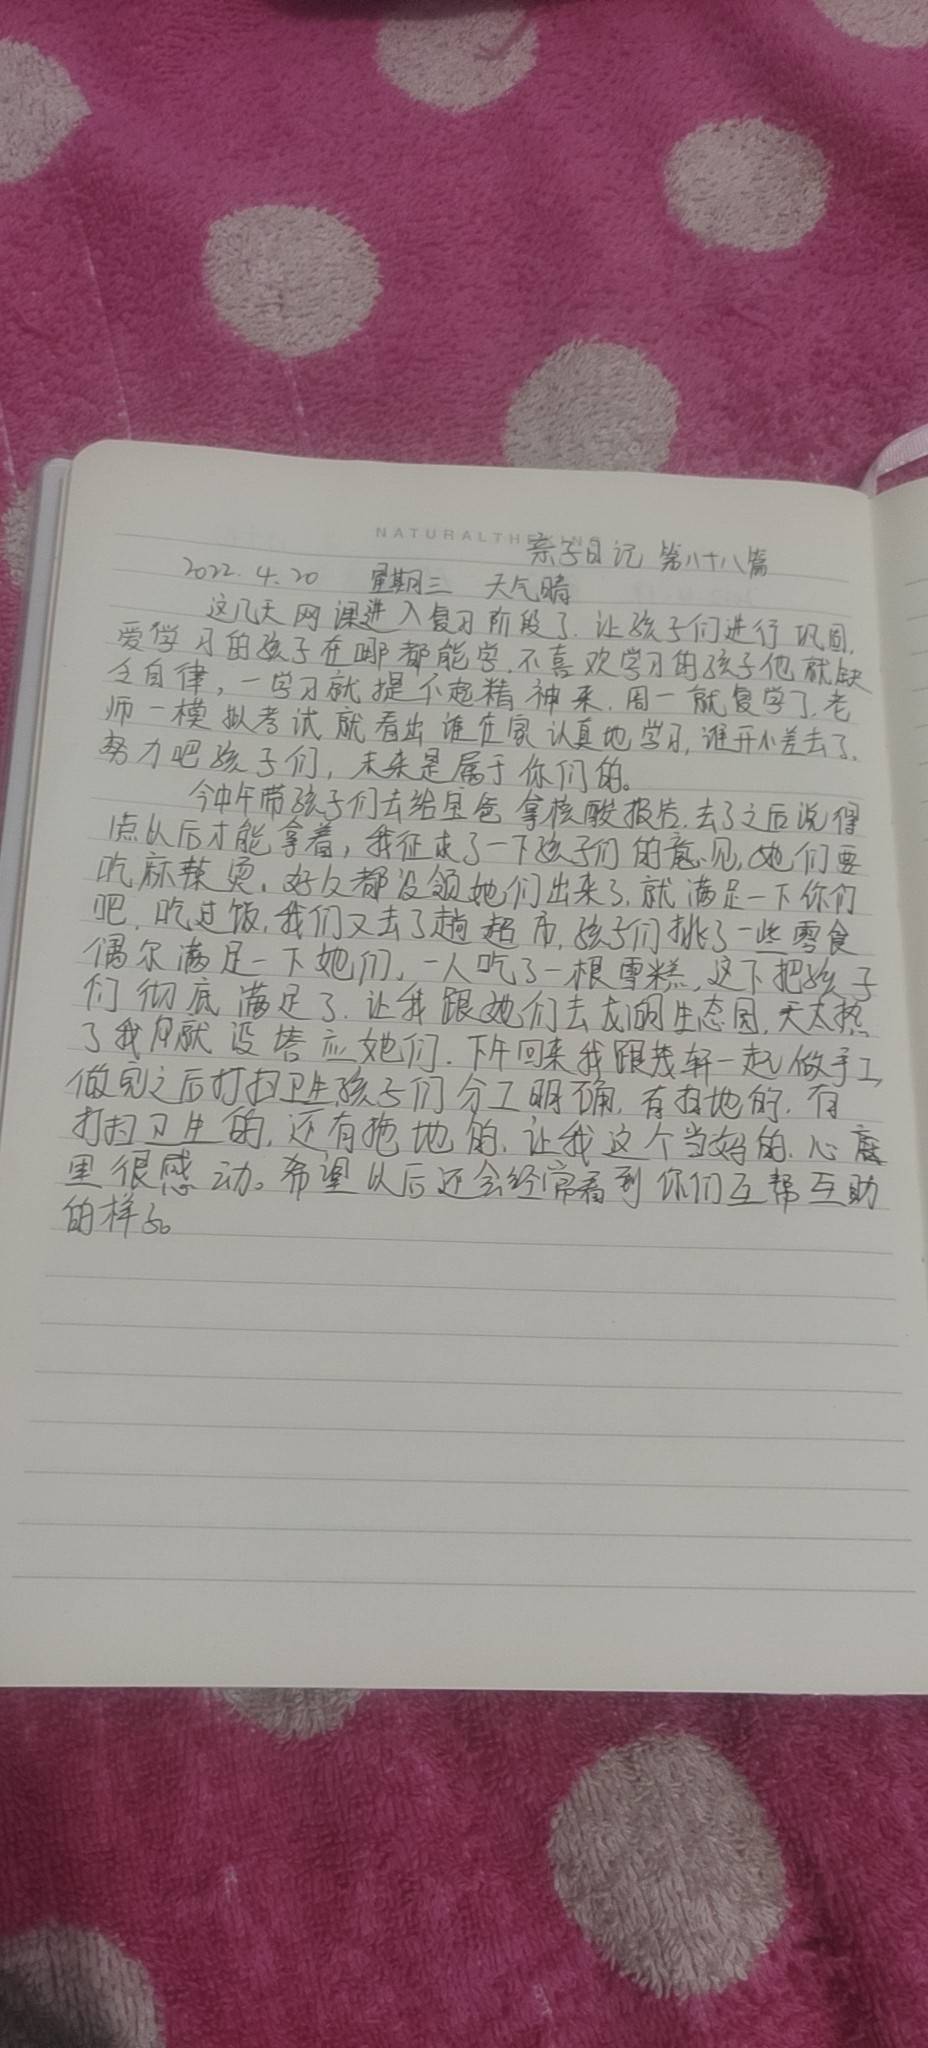 NATURALTHE
亲子日记 第八十八篇
2022.4.20 星期三 天气晴
这几天网课进入复习阶段了,让孩子们进行巩固,
爱学习的孩子在哪都能学,不喜欢学习的孩子他就缺
乏自律,一学习就提不起精神来,周一就复学了,老
师一模拟考试就看出谁在家认真地学习,谁开小差去了,
努力吧孩子们,未来是属于你们的。
今中午带孩子们去给呈爸拿核酸报告,去了之后说得
1点以后才能拿着,我征求了一下孩子们的意见,她们要
吃麻辣烫,好久都没领她们出来了,就满足一下你们
吧,吃过饭,我们又去了趟超市,孩子们挑了一些零食
偶尔满足一下她们,一人吃了一根雪糕,这下把孩子
们彻底满足了,让我跟她们去龙湖生态园,天太热
了我就没答应她们,下午回来我跟茂轩一起做手工,
做完之后打扫卫生,孩子们分工明确,有扫地的,有
打扫卫生的,还有拖地的,让我这个当妈的,心
里很感动。希望以后还会经常看到你们互帮互助
的样子。